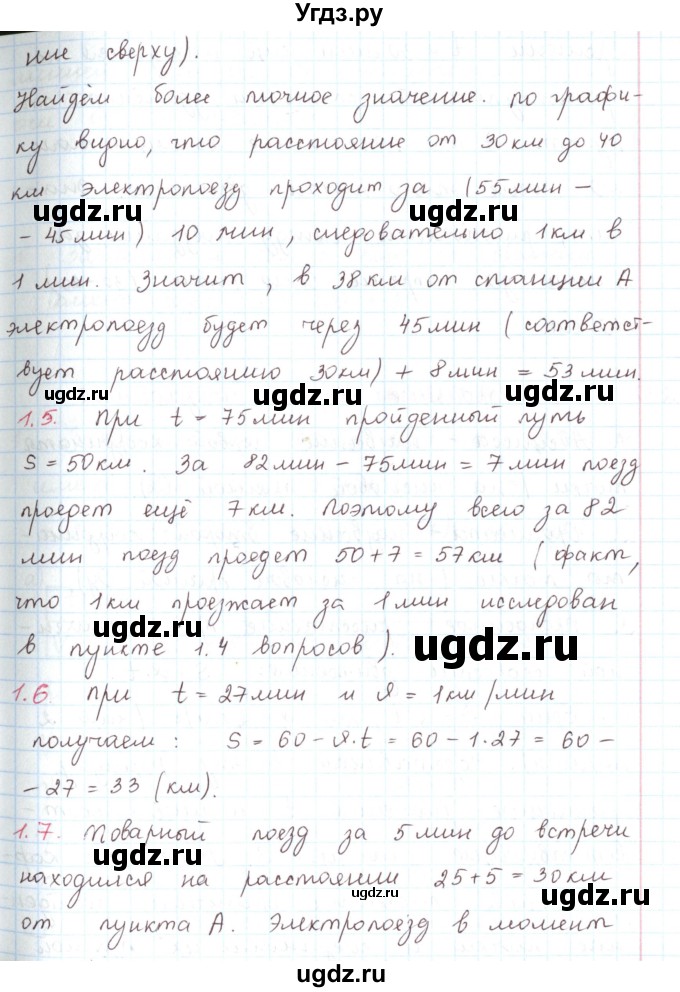 Угдз.ру
ние сверху).
Найдём более точное значение. По графи-
ку видно, что расстояние от 30 км до 40
км электропоезд проходит за (55 мин -
ugdz.ru ugdz.ru
- 45 мин) 10 мин, следовательно 1 км в
1 мин. Значит, в 38 км от станции А
электропоезд будет через 45 мин (соответст-
вует расстоянию 30 км) + 8 мин = 53 мин.
ugdz.ru ugdz.ru
1.5. При t = 75 мин пройденный путь
S = 50 км. За 82 мин - 75 мин = 7 мин поезд
проедет ещё 7 км. Поэтому всего за 82
мин поезд проедет 50 + 7 = 57 км (факт,
что 1 км проезжает за 1 мин исследован
ugdz.ru ugdz.ru
в пункте 1.4 вопросов).
1.6 При t = 27 мин и υ = 1 км/мин
получаем: S = 60 - υ·t = 60 - 1·27 = 60 -
- 27 = 33 (км).
1.7. Товарный поезд за 5 мин до встречи
ugdz.ru ugdz.ru
находился на расстоянии 25 + 5 = 30 км
ugdz.ru
от пункта А. Электропоезд в момент
ugdz.ru